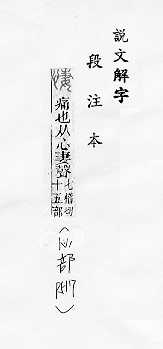 說文解字
段注本
悽 痛也从心妻聲 七稽切
十五部
（心部